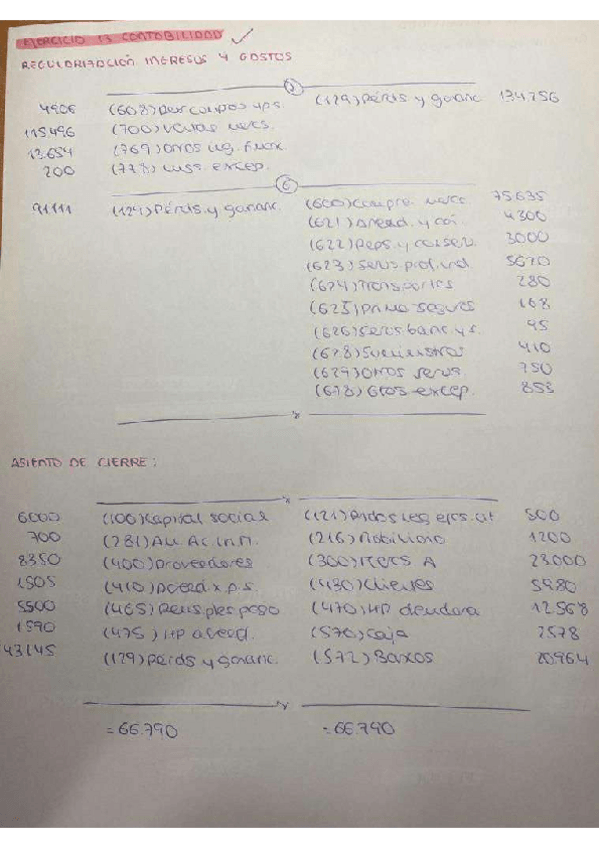 EJERCICIO 13 CONTABILIDAD ✓
REGULARIZACIÓN INGRESOS Y GASTOS
4906 (608) (129) Pérds y gananc 134256
115496 (700) Ventas mercs.
13654 (769) Otros ing. financ.
200 (778) excep.
6
91111 (129) Pérds. y gananc. (600) Compra merc 75635
(621) Arrend. y cán. 4300
(622) Reps. y conserv. 3000
(623) Servs. prof. ind 5670
(624) Transportes 280
(625) Prima seguros 168
(626) Servs. banc. y s. 95
(628) Suministros 410
(629) Otros servs. 750
(678) Gtos excep. 853
ASIENTO DE CIERRE:
6000 (100) Capital social (121) ejcs. at 500
700 (281) (216) Mobiliario 1200
8350 (400) Proveedores (300) Mercs A 23000
1505 (410) Acreed. x p.s. (430) Clientes 5980
5500 (465) (470) HP deudora 12568
1590 (475) HP acreed. (570) Caja 2578
43145 (129) Pérds y gananc. (572) Bancos 20964
= 66.790 = 66.790